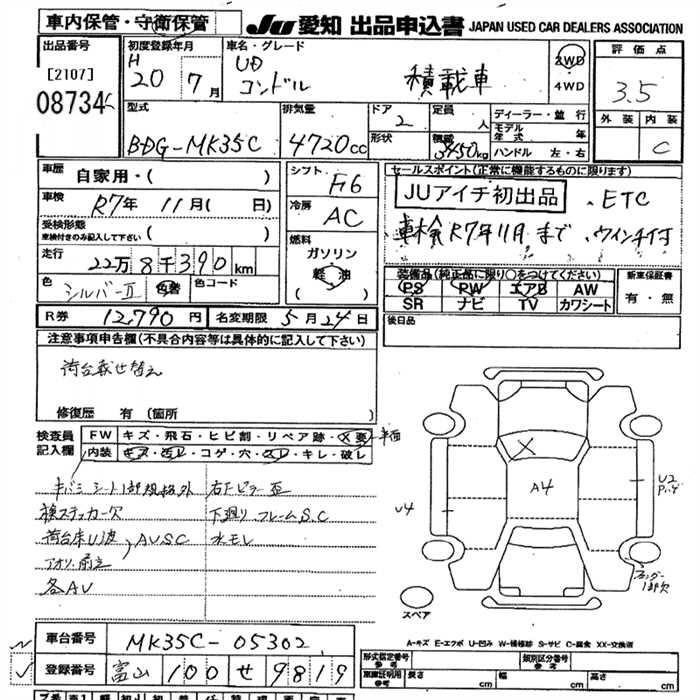 車内保管・守衛保管
JU 愛知 出品申込書 JAPAN USED CAR DEALERS ASSOCIATION
出品番号
[2107]
08734
初度登録年月
H 20年 7月
車名・グレード
UD
コンドル 積載車
2WD
4WD
評価点
3.5
外装 内装
C
型式
BDG-MK35C
排気量
4720cc
ドア
2
形状
定員
人
積載
3450kg
ディーラー・並行
モデル年式 年
ハンドル 左・右
車歴
自家用・( )
車検
R7年 11月( 日)
受検形態
車検付きのみ記入して下さい ( )
走行
22万8千390km
色
シルバーII
色替
色コード
シフト
F6
冷房
AC
燃料
ガソリン
軽油
( )
セールスポイント(正常に機能するものに限ります)
JUアイチ初出品 . ETC
車検R7年11月まで ウインチ付
装備品(純正品に限り○をつけてください)
PS PW エアB AW
SR ナビ TV カワシート
新車保証書
有・無
R券 12,790円
名変期限 5月24日
後日品
注意事項申告欄(不具合内容等は具体的に記入して下さい)
荷台載せ替え
修復歴 有(箇所 )
検査員記入欄
FW キズ・飛石・ヒビ割・リペア跡・X要
内装 キズ・汚レ・コゲ・穴・スレ・キレ・破レ
キバミ シート1部規格外 右Fピラー歪
検ステッカー欠 下廻り フレームS.C
荷台床U波, AUSC 水モレ
アオリ
各AU
A4
U4
U2
1部欠
スペア
A-キズ E-エクボ U-凹み W-補修跡 S-サビ C-腐食 XX-交換済
車台番号 MK35C-05302
登録番号 富山 100 せ 9819
形式指定番号
類別区分番号
車庫証明用参考 長さ cm 幅 cm 高さ cm